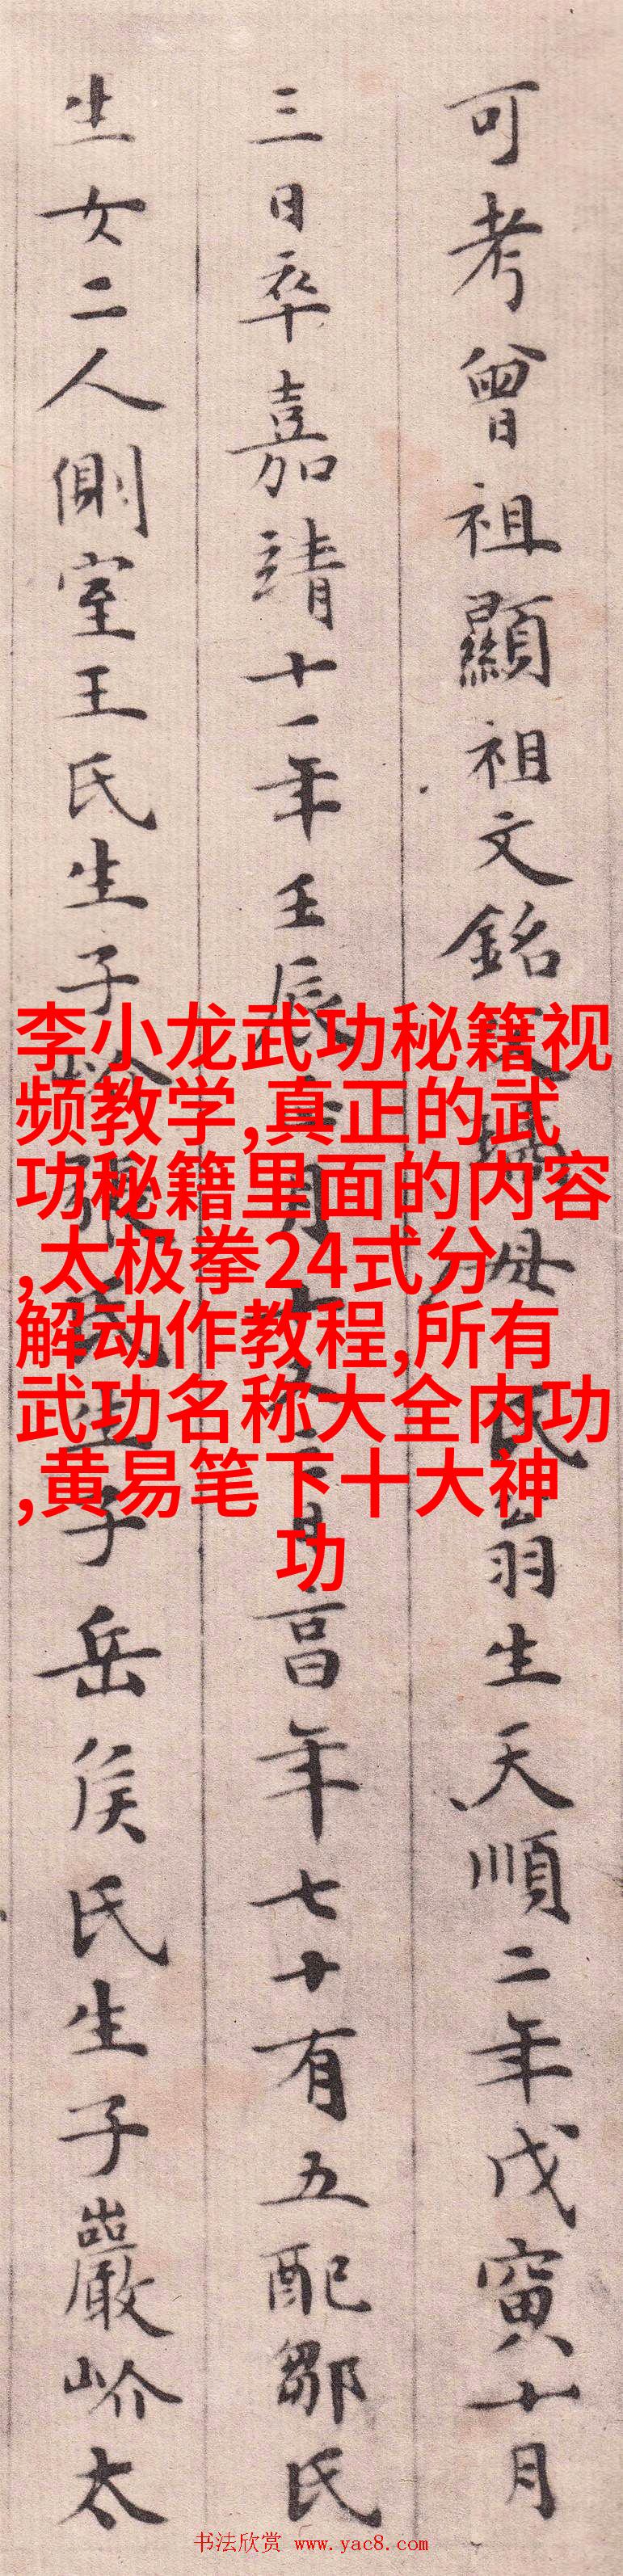 可考曾祖顯祖文銘
母
氏翁生天順二年戊寅十月
三日卒嘉靖十一年壬辰
月
享年七十有五配鄒氏
生女二人側室王氏生子
張氏生子岳侯氏生子巖岕太
李小龙武功秘籍视
频教学,真正的武
功秘籍里面的内容
,太极拳24式分
解动作教程,所有
武功名称大全内功
,黄易笔下十大神
功
书法欣赏 www.yac8.com